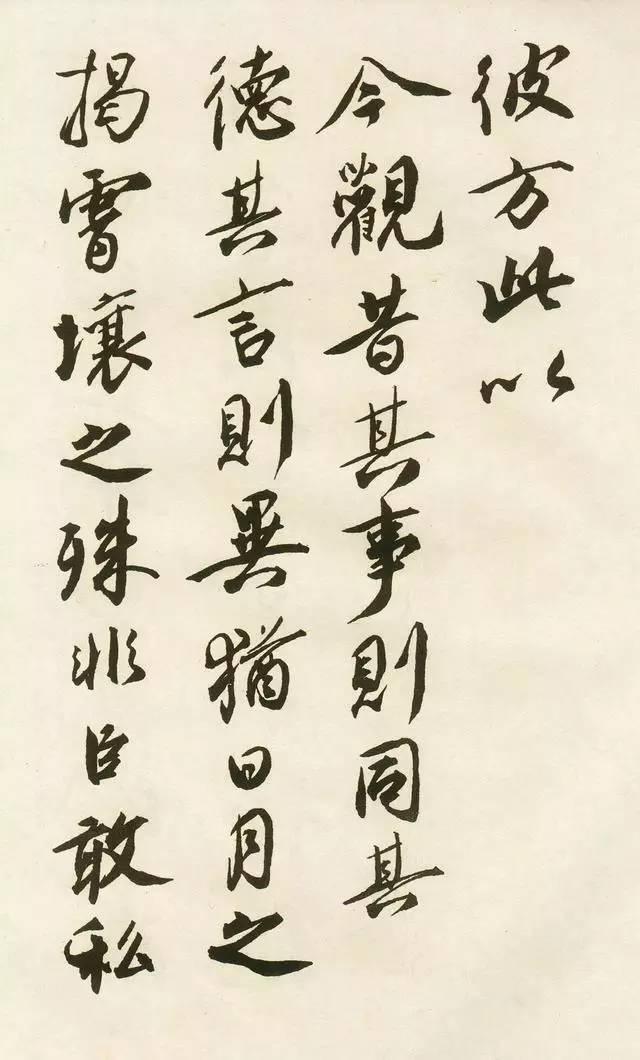 彼方此以
今觀昔其事則同其
德其言則異猶日月之
揭霄壤之殊非臣敢私